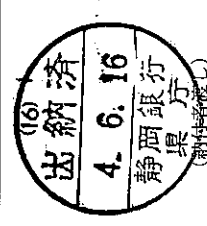 (16)
出納済
4. 6. 16
静岡銀行
県庁
(納付者渡し)